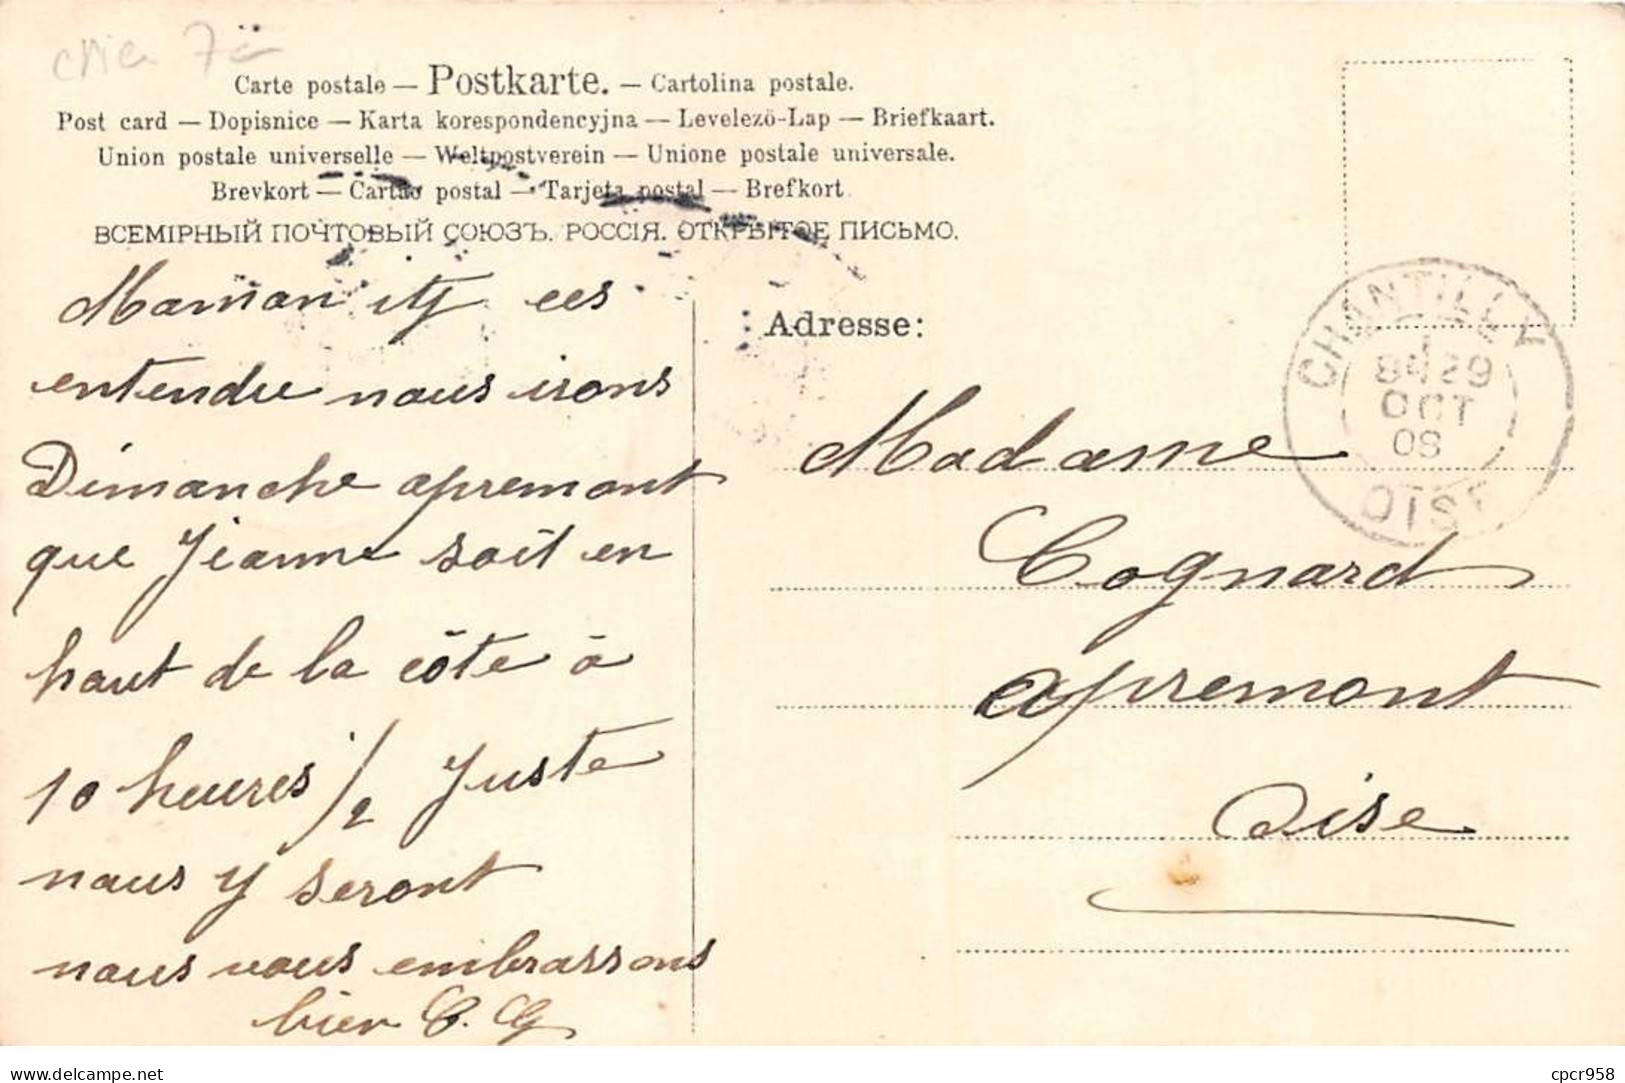 Carte postale — Postkarte. — Cartolina postale.
Post card — Dopisnice — Karta korespondencyjna — Levelezö-Lap — Briefkaart.
Union postale universelle — Weltpostverein — Unione postale universale.
Brevkort — Cartão postal — Tarjeta postal — Brefkort.
ВСЕМІРНЫЙ ПОЧТОВЫЙ СОЮЗЪ. РОССІЯ. ОТКРЫТОЕ ПИСЬМО.
Maman ees
entendue nous irons
Dimanche apremont
que Jeanne soit en
haut de la côte à
10 heures 1/2 juste
nous y seront
nous vous embrassons
bien C. G
Adresse:
CHANTILLY
8H 29
OCT
08
OISE
Madame
Cognard
apremont
Oise
delcampe.net
cpcr958